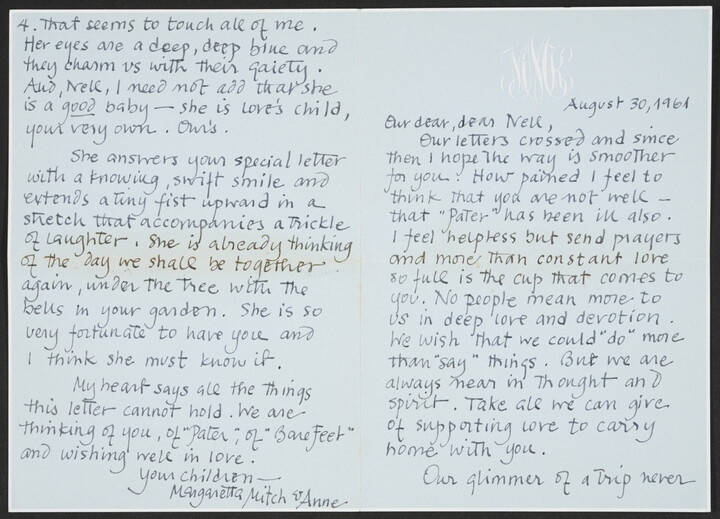 4. That seems to touch all of me.
Her eyes are a deep, deep blue and
they charm us with their gaiety.
And, Nell, I need not add that she
is a good baby — she is love's child,
your very own. Our's.
She answers your special letter
with a knowing, swift smile and
extends a tiny fist upward in a
stretch that accompanies a trickle
of laughter. She is already thinking
of the day we shall be together
again, under the tree with the
bells in your garden. She is so
very fortunate to have you and
I think she must know it.
My heart says all the things
this letter cannot hold. We are
thinking of you, of "Pater", of "Bare Feet"
and wishing well in love.
Your children —
Margaretta, Mitch & Anne
August 30, 1961
Our dear, dear Nell,
Our letters crossed and since
then I hope the way is smoother
for you. How pained I feel to
think that you are not well —
that "Pater" has been ill also.
I feel helpless but send prayers
and more than constant love
so full is the cup that comes to
you. No people mean more to
us in deep love and devotion.
We wish that we could "do" more
than "say" things. But we are
always near in thought and
spirit. Take all we can give
of supporting love to carry
home with you.
Our glimmer of a trip never